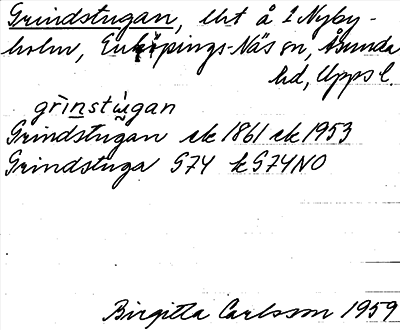 Grindstugan, lht å 2 Nyby-
holm, Enköpings-Näs sn, Åsunda
hd, Upps l.
grìnstù̠gan
Grindstugan ek 1861 ek 1953
Grindstuga G74 k G74NO
Birgitta Carlsson 1959